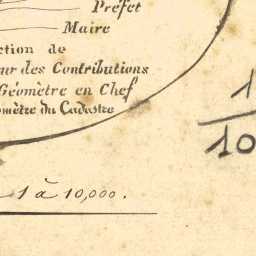 Préfet
Maire
ction de
ur des Contributions
Géomètre en Chef
omètre du Cadastre
1
10
1 à 10,000.